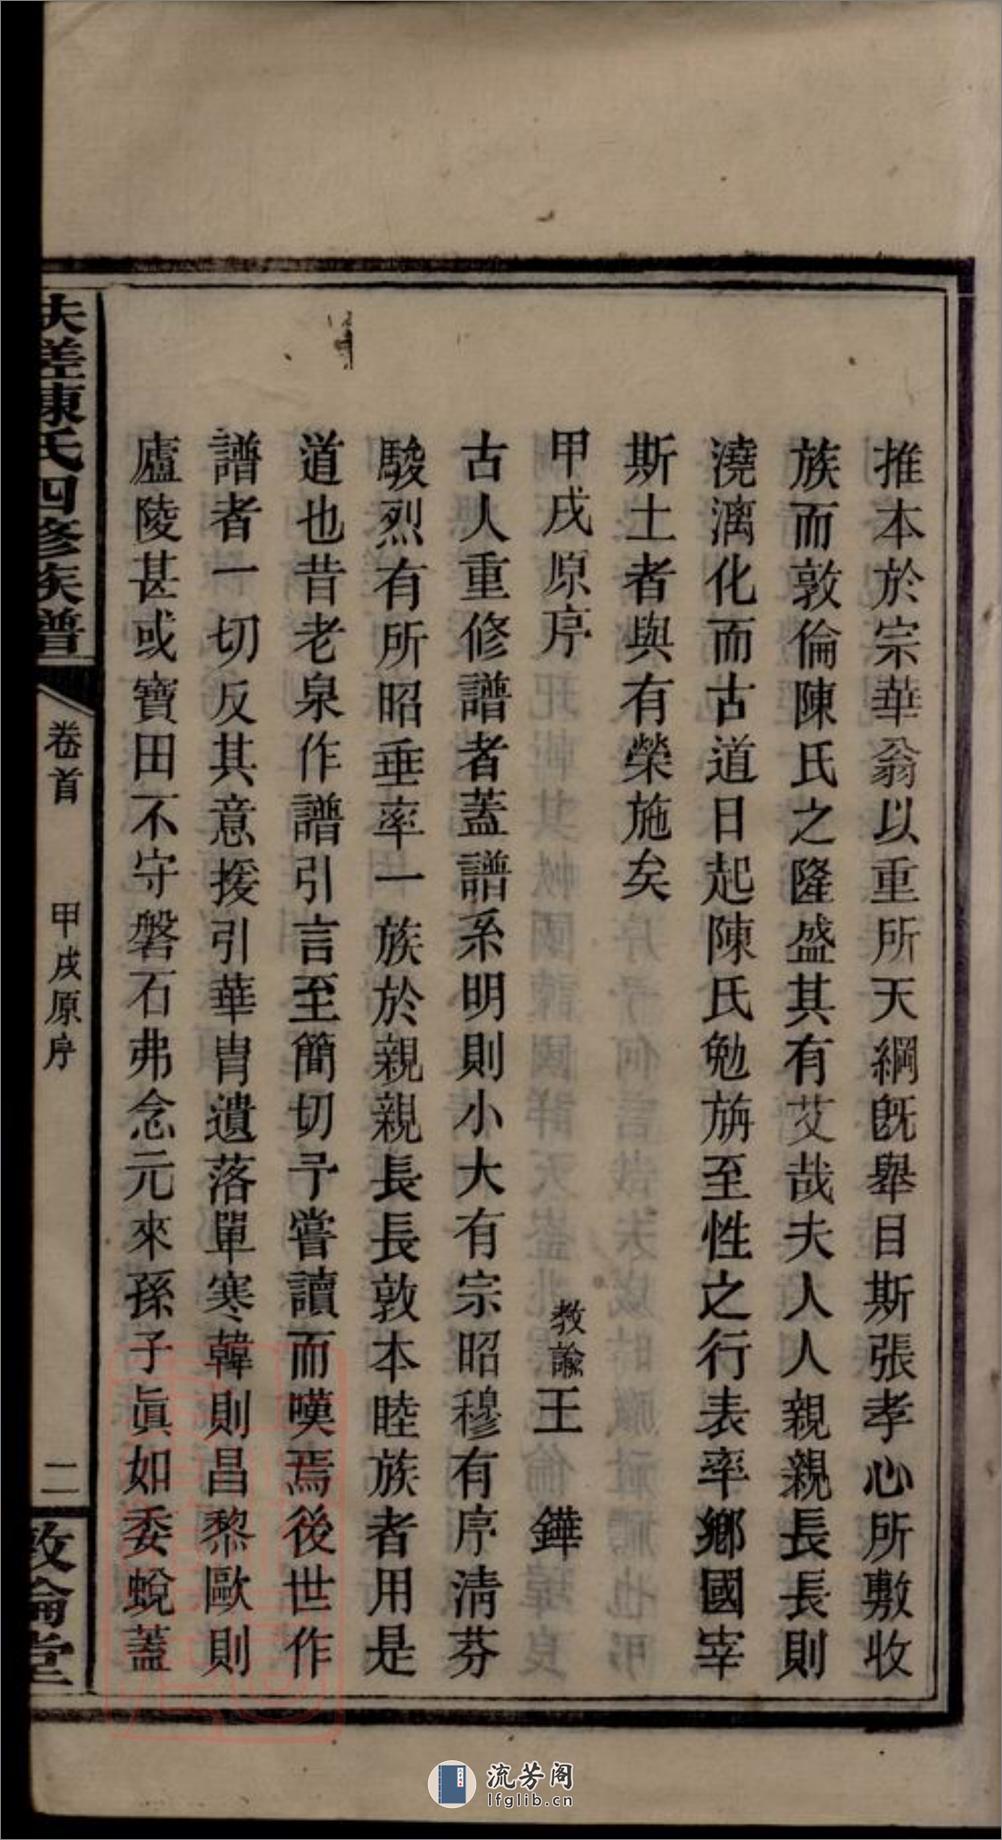 推本於宗華翁以重所天綱旣舉目斯張孝心所敷收
族而敦倫陳氏之隆盛其有艾哉夫人人親親長長則
澆漓化而古道日起陳氏勉旃至性之行表率鄉國宰
斯土者與有榮施矣
甲戌原序
教諭王鏵
古人重修譜者蓋譜系明則小大有宗昭穆有序清芬
駿烈有所昭垂率一族於親親長長敦本睦族者用是
道也昔老泉作譜引言至簡切予嘗讀而嘆焉後世作
譜者一切反其意援引華胄遺落單寒韓則昌黎歐則
廬陵甚或寶田不守磐石弗念元來孫子眞如委蛻蓋
扶槎陳氏四修族譜
卷首
甲戌原序
二
敦倫堂
流芳阁
lfglib.cn